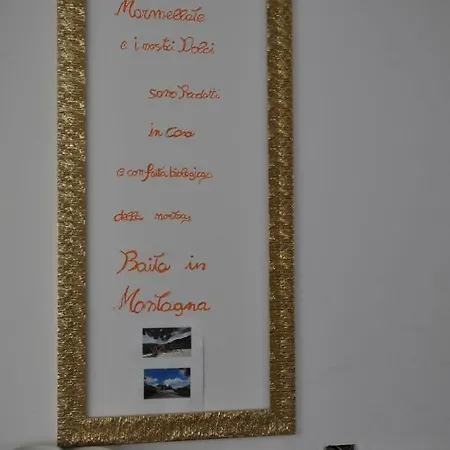 Marmellate
e i nostri Dolci
sono Prodotti
in casa
e con frutta biologica
della nostra
Baita in
Montagna